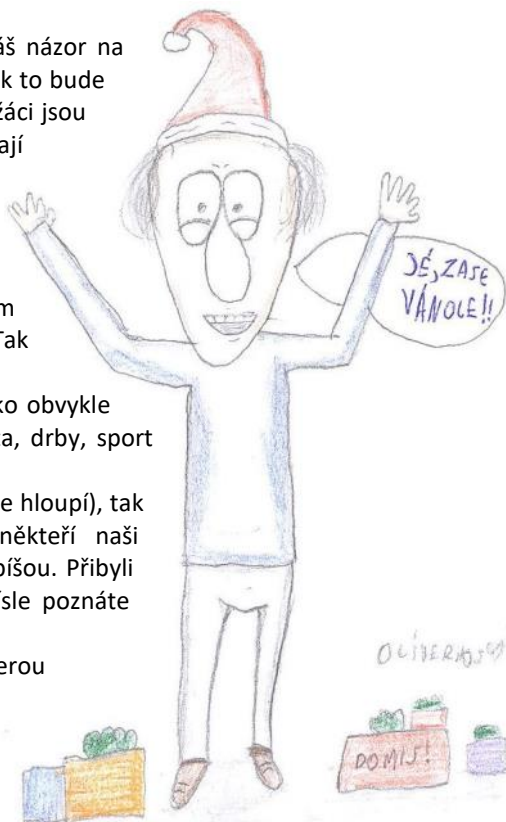 áš názor na
k to bude
žáci jsou
ají
m
Tak
ko obvykle
a, drby, sport
e hloupí), tak
někteří naši
píšou. Přibyli
ísle poznáte
erou
JÉ, ZASE
VÁNOCE!!
DOMIS!